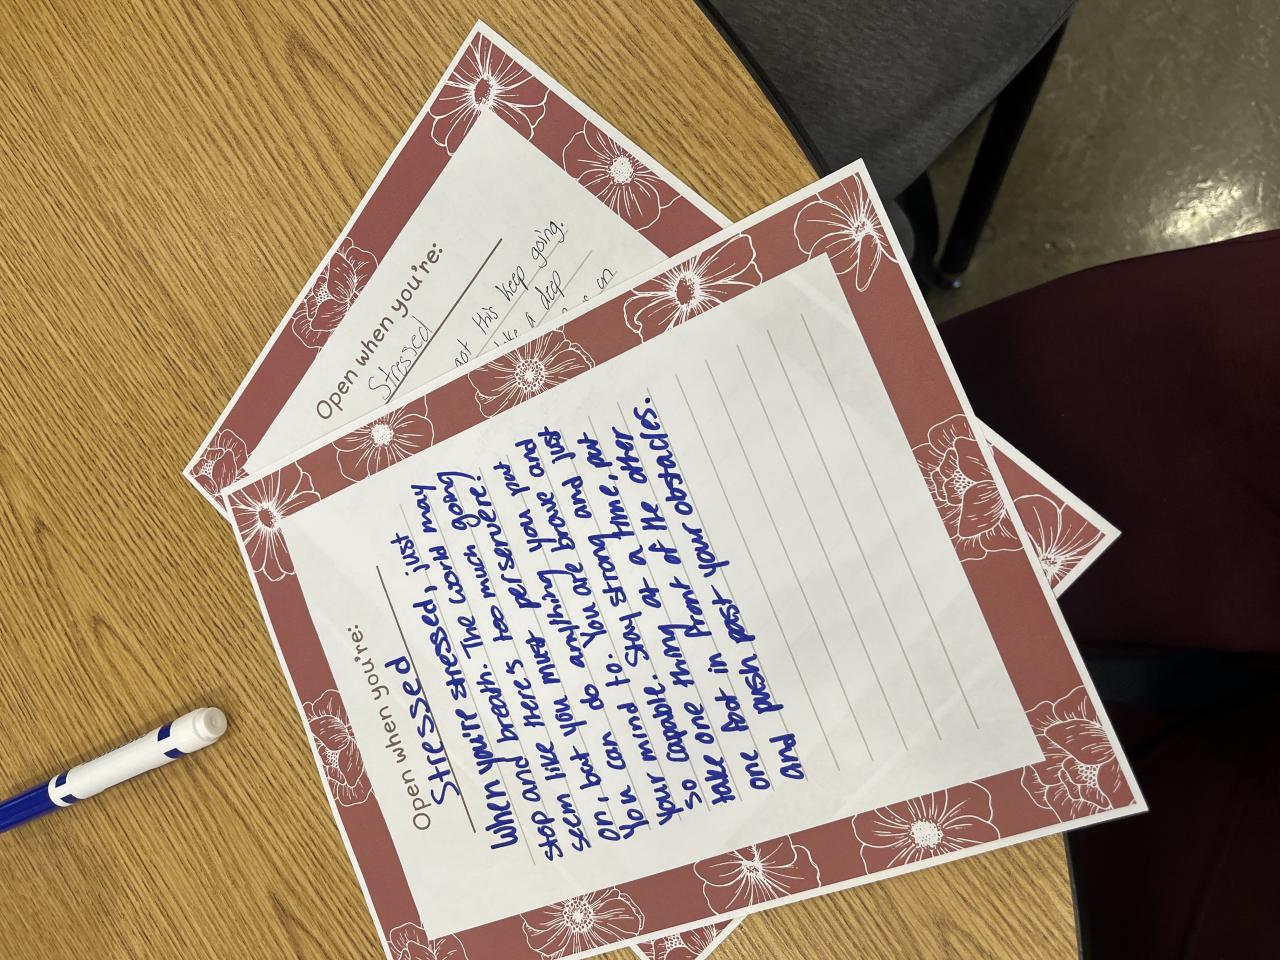 Open when you're:
Stressed
When you're stressed, just
stop and breath. The world may
seem like there's too much going
on, but you must perservere!
You can do anything you put
your mind to. You are brave and
so capable. Stay strong and just
take one thing at a time, put
one foot in front of the other
and push past your obstacles.
Open when you're:
Stressed
got this keep going.
a deep
on